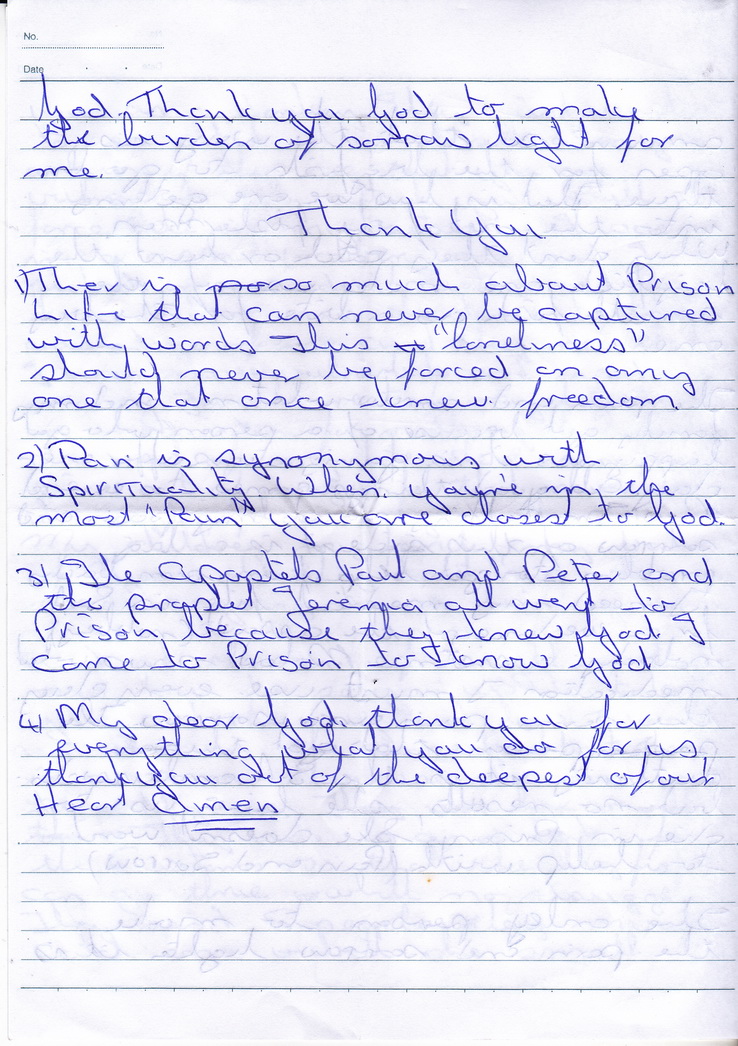 No.
Date
God, Thank you God to make
the burden of sorrow light for
me.
Thank You
1) Ther is so much about Prison
Life that can never be captured
with words This "loneliness"
should never be forced on any
one that once knew freedom.
2) Pain is synonymous with
Spirituality. When you're in the
most "Pain" you are closes to God.
3) The Apostels Paul and Peter and
the prophet Jeremia all went to
Prison because they knew God. I
came to Prison to know God
4) My dear God, thank you for
everything what you do for us,
thank you out of the deepest of our
Heart Amen